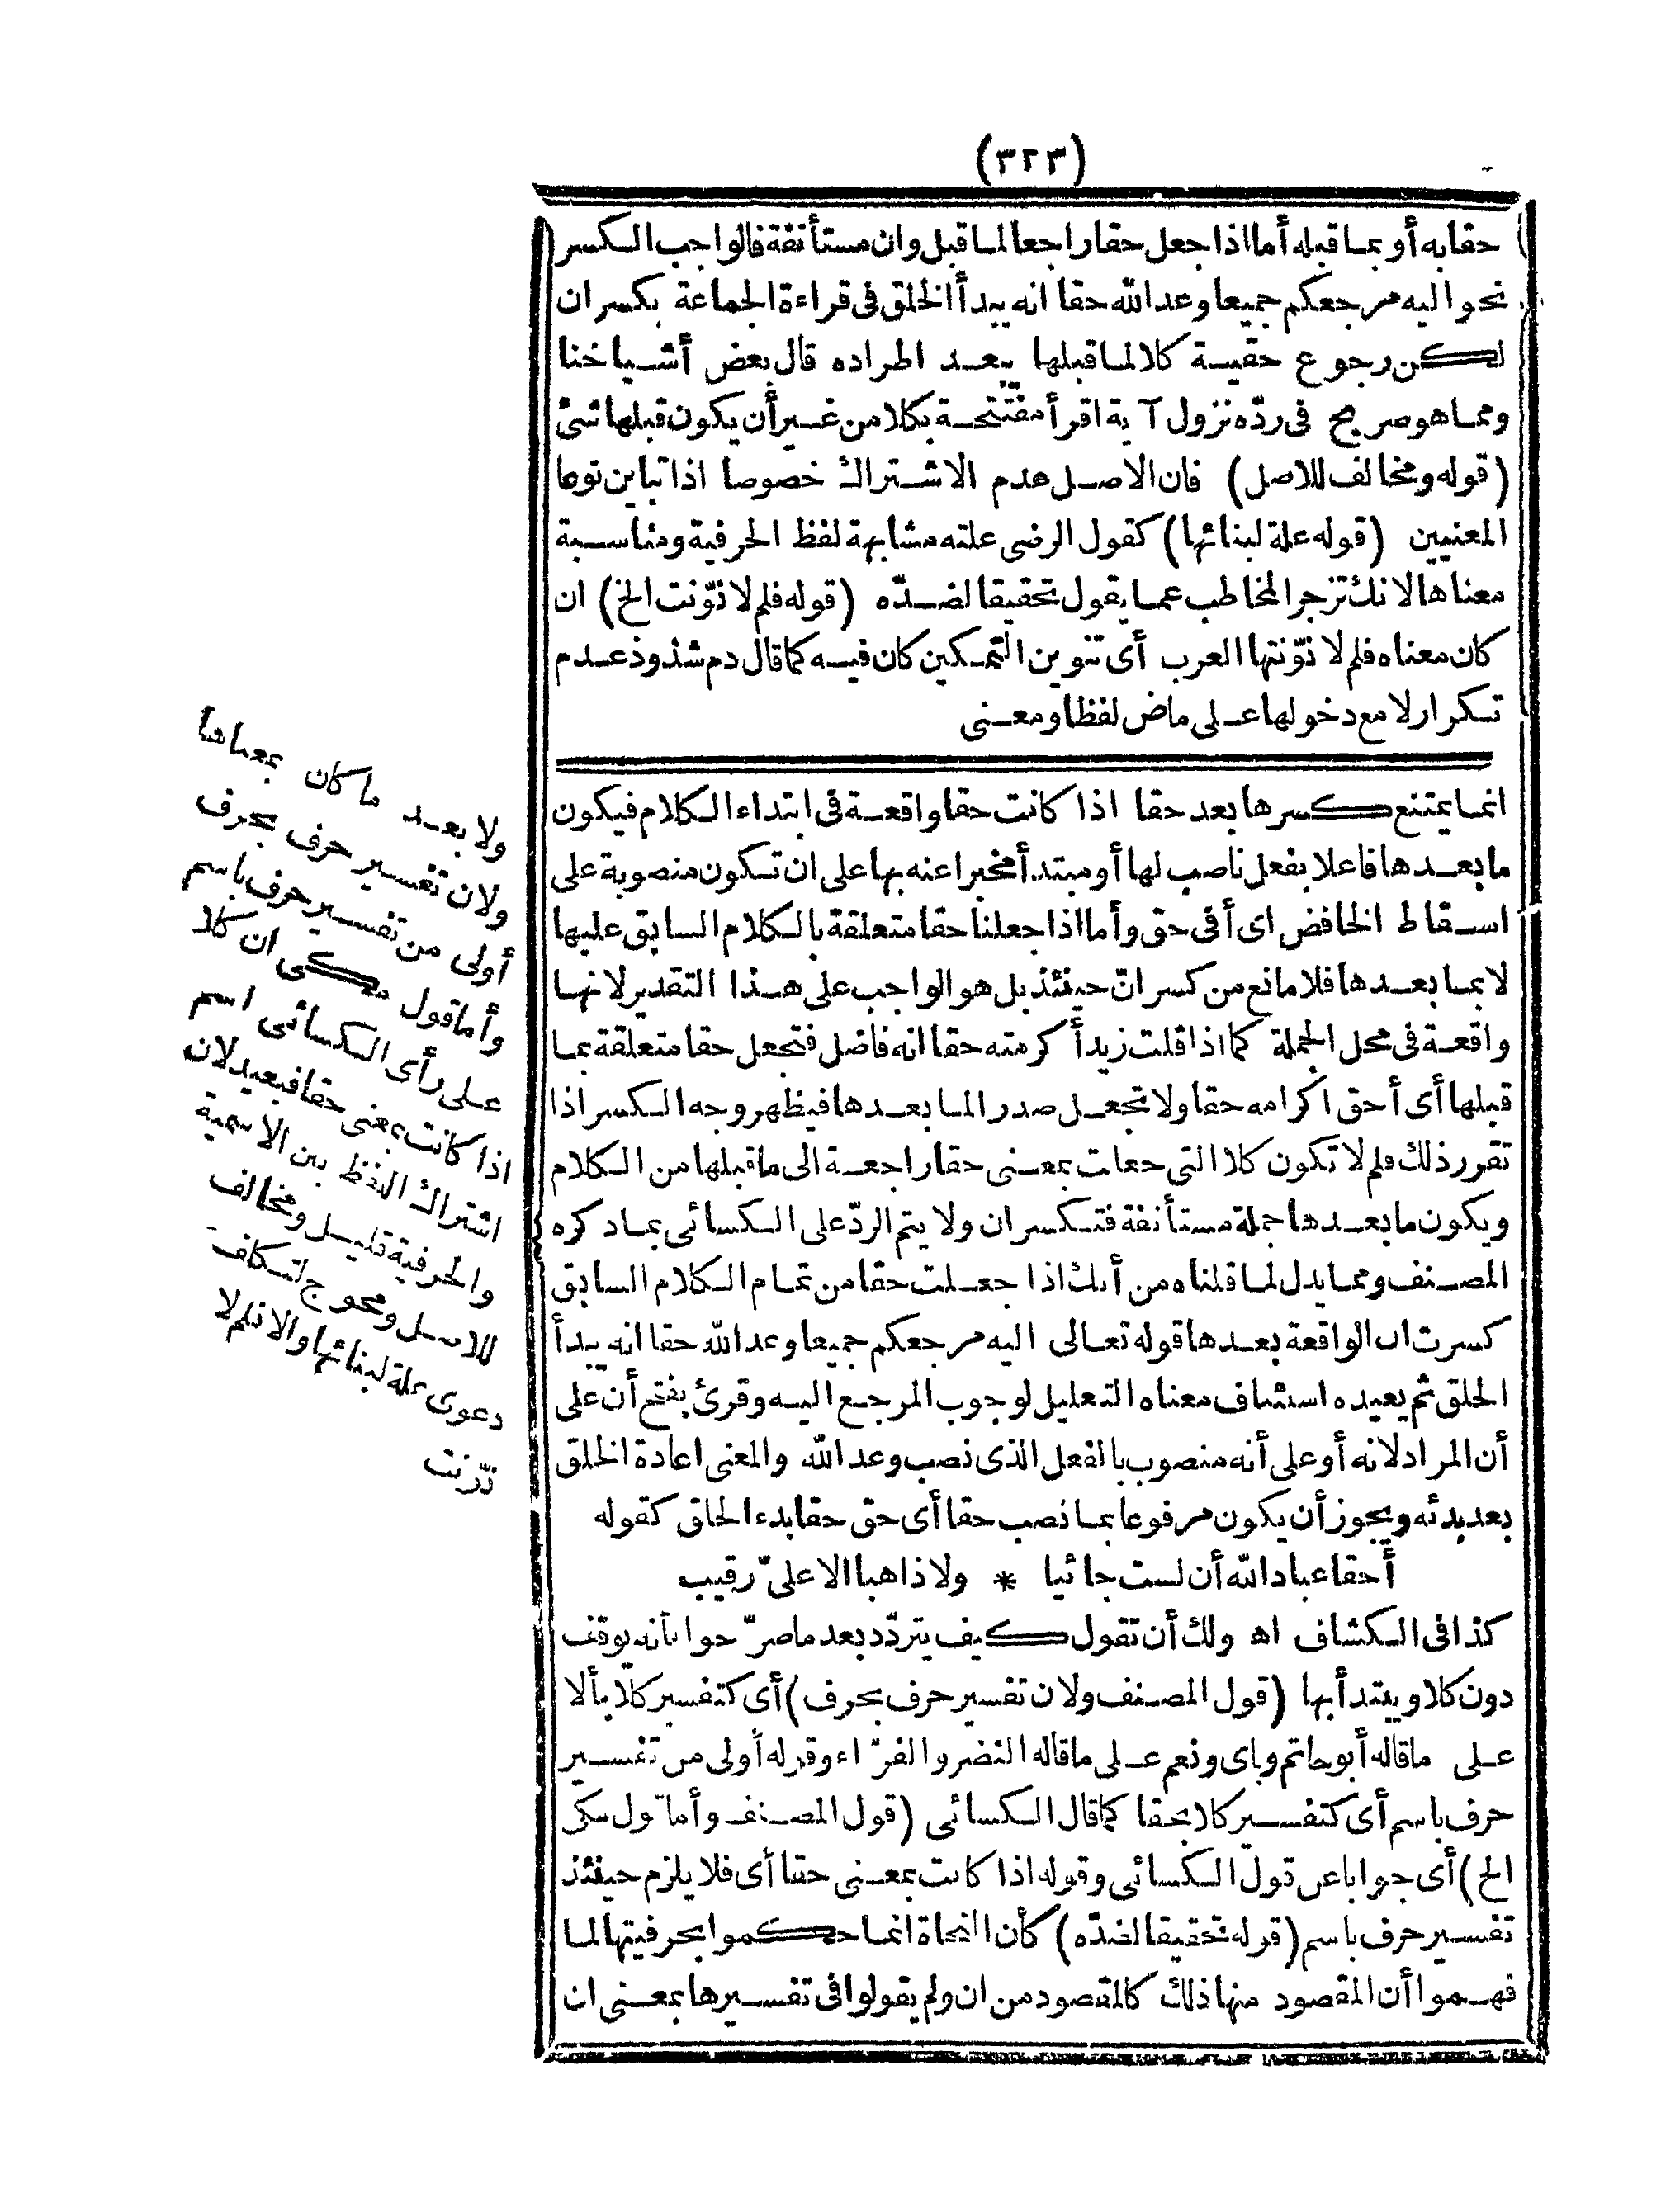 (٣٢٣)
حقا به أو بما قبله أما اذا جعل حقا راجعا لما قبل وان مستأنفة فالواجب الكسر
نحو اليه مرجعكم جميعا وعد الله حقا انه يبدأ الخلق فى قراءة الجماعة بكسر ان
لكن رجوع حقية كلا لما قبلها يبعد اطراده قال بعض أشياخنا
ومما هو صريح فى ردّه نزول آية اقرأ مفتتحة بكلا من غير أن يكون قبلها شئ
(قوله ومخالف للاصل) فان الاصل عدم الاشتراك خصوصا اذا تباين نوعا
المعنيين (قوله علة لبنائها) كقول الرضى علته مشابهة لفظ الحرفية ومناسبة
معناها لانك تزجر المخاطب عما يقول تحقيقا لضدّه (قوله فلم لا نوّنت الخ) ان
كان معناه فلم لا نوّنتها العرب أى تنوين التمكين كان فيه كما قال دم شذوذ عدم
تكرار لا مع دخولها على ماض لفظا ومعنى
انما يمتنع كسرها بعد حقا اذا كانت حقا واقعة فى ابتداء الكلام فيكون
ما بعدها فاعلا بفعل ناصب لها أو مبتدأ مخبرا عنه بها على ان تكون منصوبة على
اسقاط الخافض اى أفى حق وأما اذا جعلنا حقا متعلقة بالكلام السابق عليها
لا بما بعدها فلا مانع من كسر انّ حينئذ بل هو الواجب على هذا التقدير لانها
واقعة فى محل الجملة كما اذا قلت زيد أكرمته حقا انه فاضل فتجعل حقا متعلقة بما
قبلها أى أحق اكرامه حقا ولا تجعل صدرا لما بعدها فيظهر وجه الكسر اذا
تقرر ذلك فلم لا تكون كلا التى جعلت بمعنى حقا راجعة الى ما قبلها من الكلام
ويكون ما بعدها جملة مستأنفة فتكسر ان ولا يتم الردّ على الكسائى بما ذكره
المصنف ومما يدل لما قلناه من أنك اذا جعلت حقا من تمام الكلام السابق
كسرت ان الواقعة بعدها قوله تعالى اليه مرجعكم جميعا وعد الله حقا انه يبدأ
الخلق ثم يعيده استئناف معناه التعليل لوجوب المرجع اليه وقرئ بفتح أن على
أن المراد لانه أو على أنه منصوب بالفعل الذى نصب وعد الله والمعنى اعادة الخلق
بعد بدئه ويجوز أن يكون مرفوعا بما نصب حقا أى حق حقا بدء الخلق كقوله
أحقا عباد الله أن لست جائيا * ولا ذاهبا الا علىّ رقيب
كذا فى الكشاف اه ولك أن تقول كيف يتردّد بعد ما صرّحوا بأنه يوقف
دون كلا ويبتدأ بها (قول المصنف ولان تفسير حرف بحرف) أى كتفسير كلا بألا
على ما قاله أبو حاتم وباى ونعم على ما قاله النضر والفرّاء وقوله أولى من تفسير
حرف باسم أى كتفسير كلا بحقا كما قال الكسائى (قول المصنف وأما قول مكى
الخ) أى جوابا عن قول الكسائى وقوله اذا كانت بمعنى حقا أى فلا يلزم حينئذ
تفسير حرف باسم (قوله تحقيقا لضدّه) كأن النحاة انما حكموا بحرفيتها لما
فهموا أن المقصود منها ذلك كالمقصود من ان ولم يقولوا فى تفسيرها بمعنى ان
ولا بعد ما كان بمعناها
ولان تفسير حرف بحرف
أولى من تفسير حرف باسم
وأما قول مكى ان كلا
على رأى الكسائى اسم
اذا كانت بمعنى حقا فبعيد لان
اشتراك اللفظ بين الاسمية
والحرفية قليل ومخالف
للاصل ومحوج لتكلف
دعوى علة لبنائها والا فلم لا
نوّنت